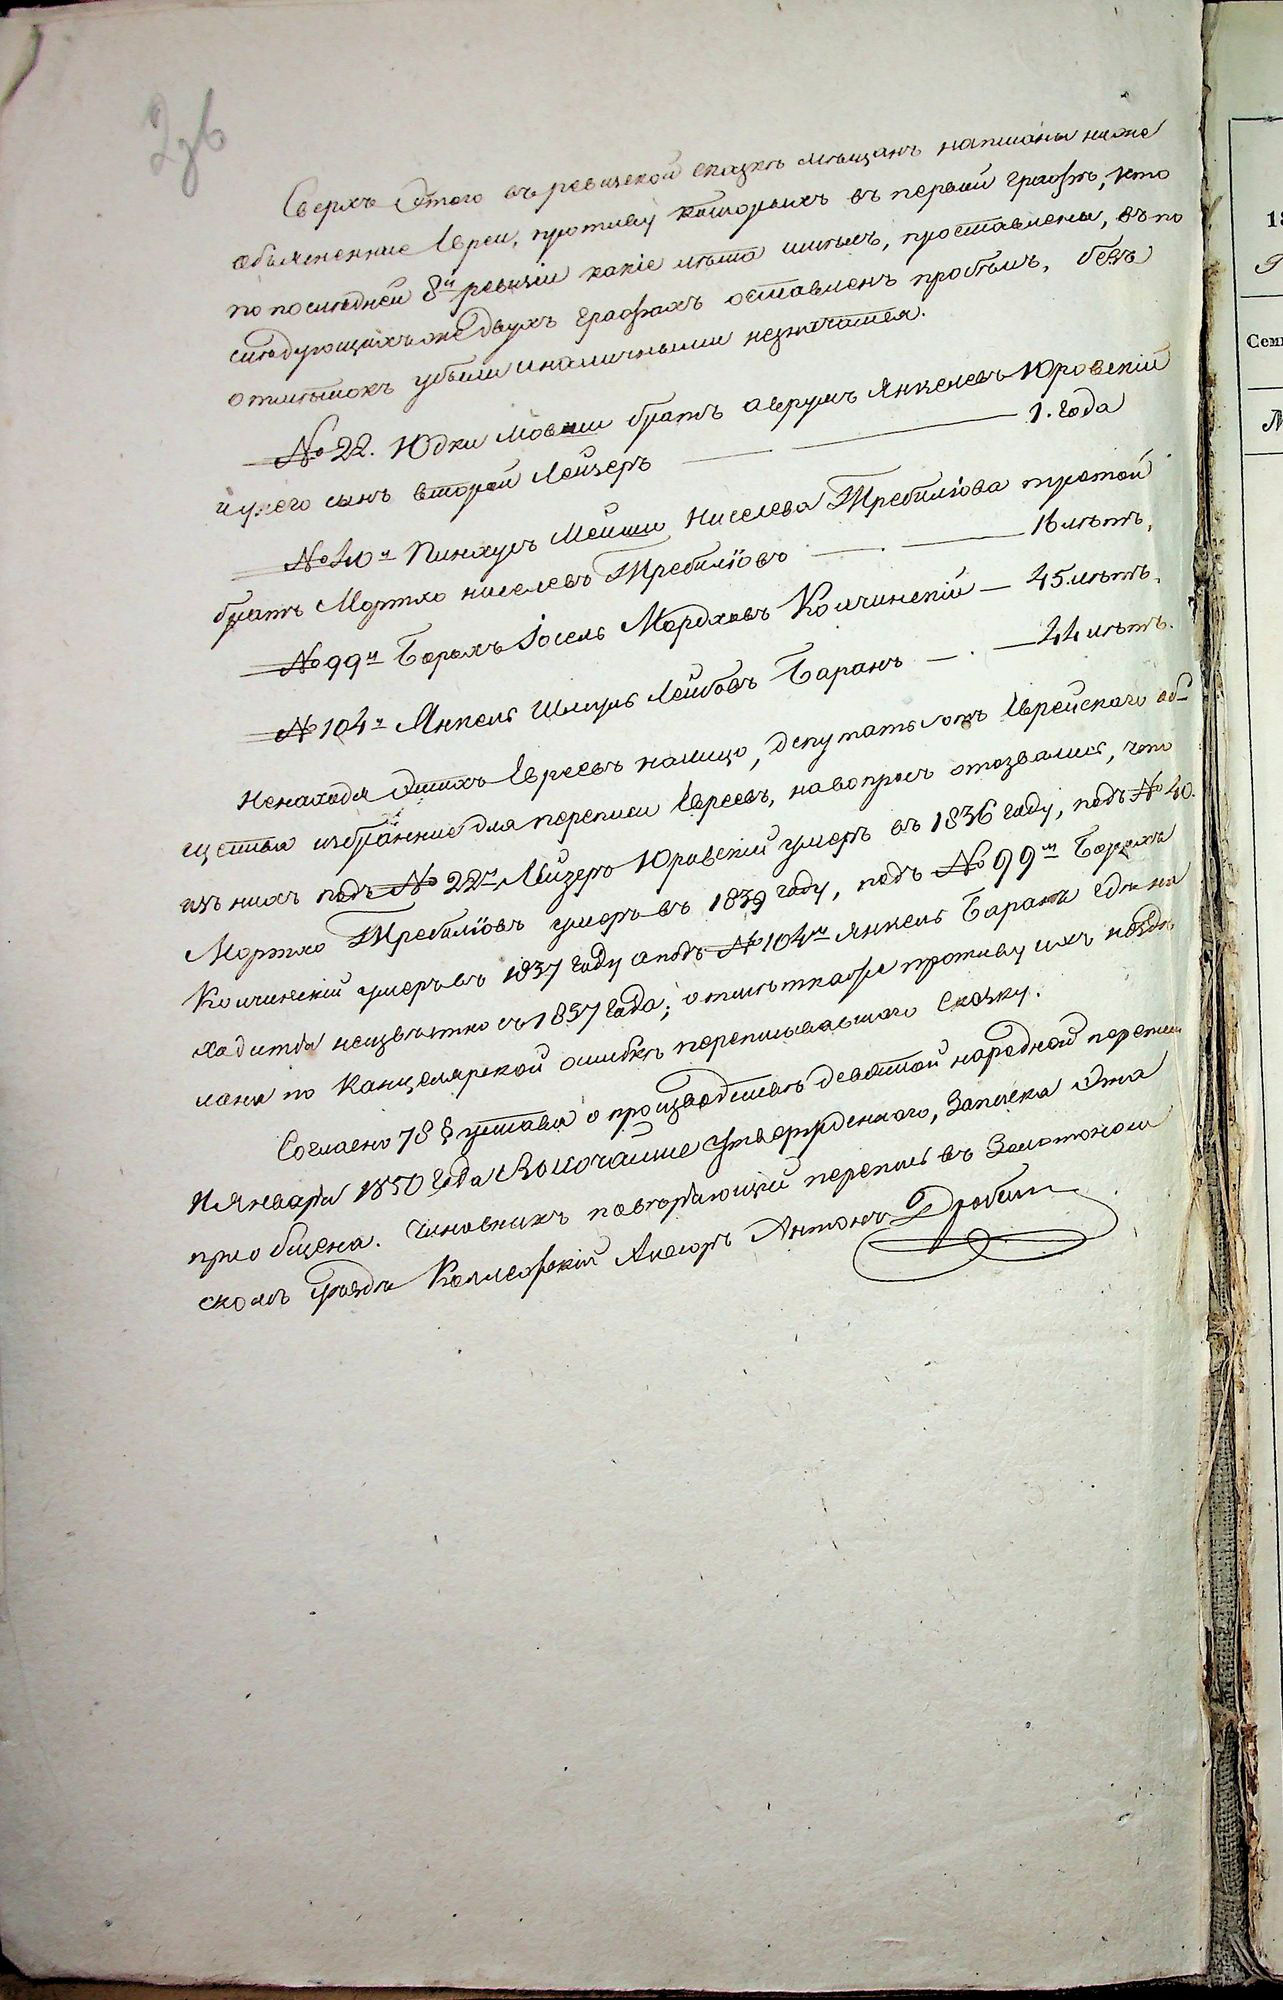 Сверхъ этого въ ревизской сказкѣ мѣщанъ написаны ниже
объясненные Евреи, противу которыхъ въ первой графѣ, кто
по последней 8й ревизіи какіе лѣта имѣлъ, проставлены, въ по
слѣдующихъ же двухъ графахъ оставленъ пробѣлъ, безъ
отмѣтокъ убыли и наличными незначатся.
№ 22. Юдки Мовши братъ Аврумъ Янкелевъ Юровскій
и у него сынъ второй Лейзеръ 1. года
№ 40й Пинхусъ Мейши Киселева Требилюва третой
братъ Мортхо Киселевъ Требилювъ 16 лѣтъ,
№ 99й Борохъ Іосель Мордховъ Колчинскій — 45 лѣтъ,
№ 104й Янкель Шмуль Лейбовъ Баранъ — 44 лѣтъ.
Ненаходя этихъ Евреевъ налицо, депутаты отъ Еврейскаго об-
щества избранные для переписи Евреевъ, навопросъ отозвались, что
изъ нихъ подъ № 22м Лейзеръ Юровскій умеръ въ 1836 году, подъ № 40.
Мортхо Требилювъ умеръ въ 1839 году, подъ № 99м Борохъ
Колчинскій умеръ въ 1837 году а подъ № 104м Янкель Баранъ гдѣ на
ходится неизвѣстно съ 1837 года; отмѣтка же противу ихъ несдѣ
лана по Канцелярской ошибкѣ переписывавшаго сказку.
Согласно 78 § устава о производствѣ девятой народной переписи
11 Января 1850 года Высочайше утвержденного, Записка эта
пріобщена. Чиновникъ повѣряющій перепись въ Золотонош
скомъ уѣздѣ Коллежскій Асесоръ Антонъ